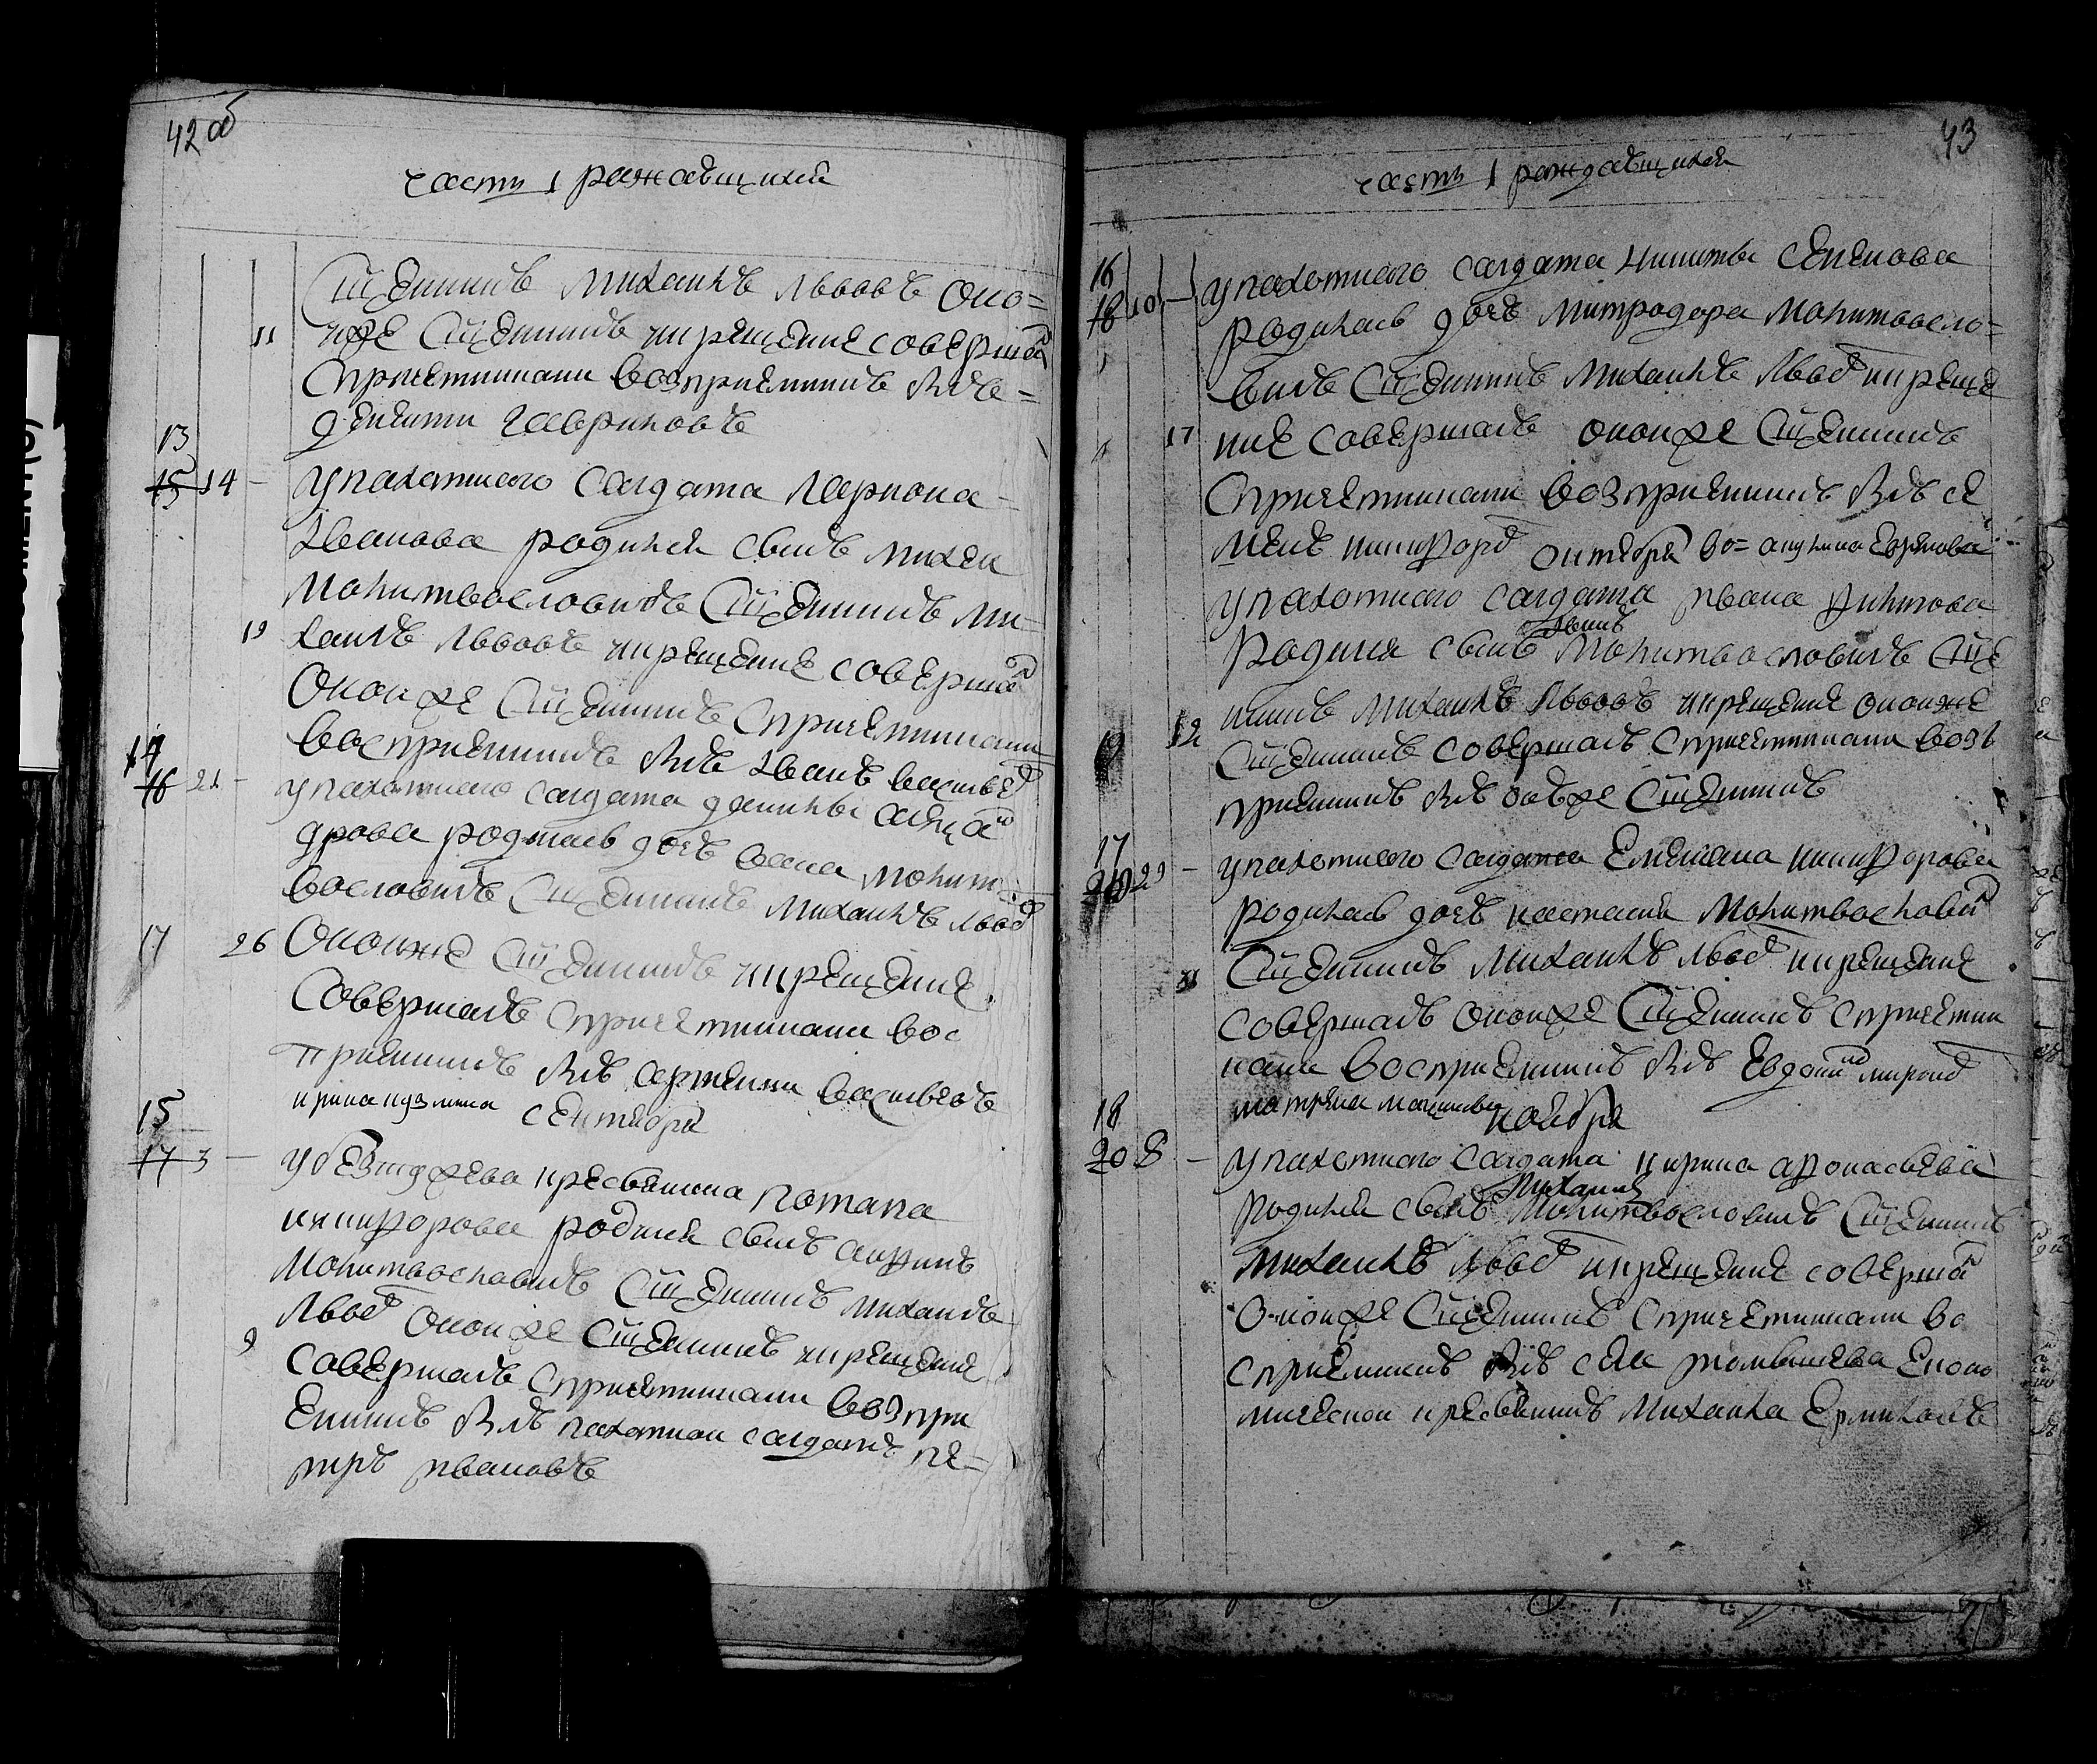 42 об
часть 1 раждающихся
Сщенникъ михаилъ львовъ оно=
11 иже Сщенникъ икрещение совершал
Спричетниками восприемникъ былъ
дементи гавриловъ
13
15 14 – упахотнаго салдата лариона
Иванова родился сынъ михей
молитвословилъ Сщенникъ ми
19 хаилъ львовъ икрещение совершал
оной же Сщенникъ Спричетниками
восприемникъ былъ Иванъ васильев
14
16 21 – упахотнаго салдата данилы алексан
дрова родилась дочь васса молит
вословилъ Сщенникъ михаилъ львов
17 26 Онойже Сщенникъ икрещение
Совершалъ Спричетниками вос
приемникъ былъ васильевъ
сентября
15
17 3 – у крестьянина потапа
никифорова родился сынъ
молитвословилъ Сщенникъ михаилъ
львов оной же Сщенникъ икрещение
9 совершалъ Спричетниками возпри
емникъ былъ пахотной салдатъ пе=
тръ ивановъ
43
часть 1 раждающихся
16
18 10 – упахотнаго салдата Никиты Семенова
родилась дочь митродора молитвосло=
вилъ Сщенникъ михаилъ львов икреще
17 ние совершалъ оной же Сщенникъ
Спричетниками возприемникъ былъ се
менъ никифоров октября
упахотнаго салдата ивана филипова
родился сынъ молитвословилъ Сще
нникъ михаилъ львовъ икрещение онойже
12 Сщенникъ совершалъ Спричетниками возъ
приемникъ былъ онъже Сщенникъ
17
29 – упахотнаго салдата Емельяна никифорова
родилась дочь настасия молитвословил
31 Сщенникъ михаилъ львов икрещение
совершалъ оной же Сщенникъ Спричетни
ками восприемникъ былъ Евдоким миронов
матрена ноября
18
20 8 – упахотнаго салдата кирила афонасьева
михаилъ
родился сынъ молитвословилъ Сщенникъ
михаилъ львов икрещение совершал
оной же Сщенникъ Спричетниками во
сприемникъ былъ села Еконо
мической крестьянинъ михаила Ермиловъ